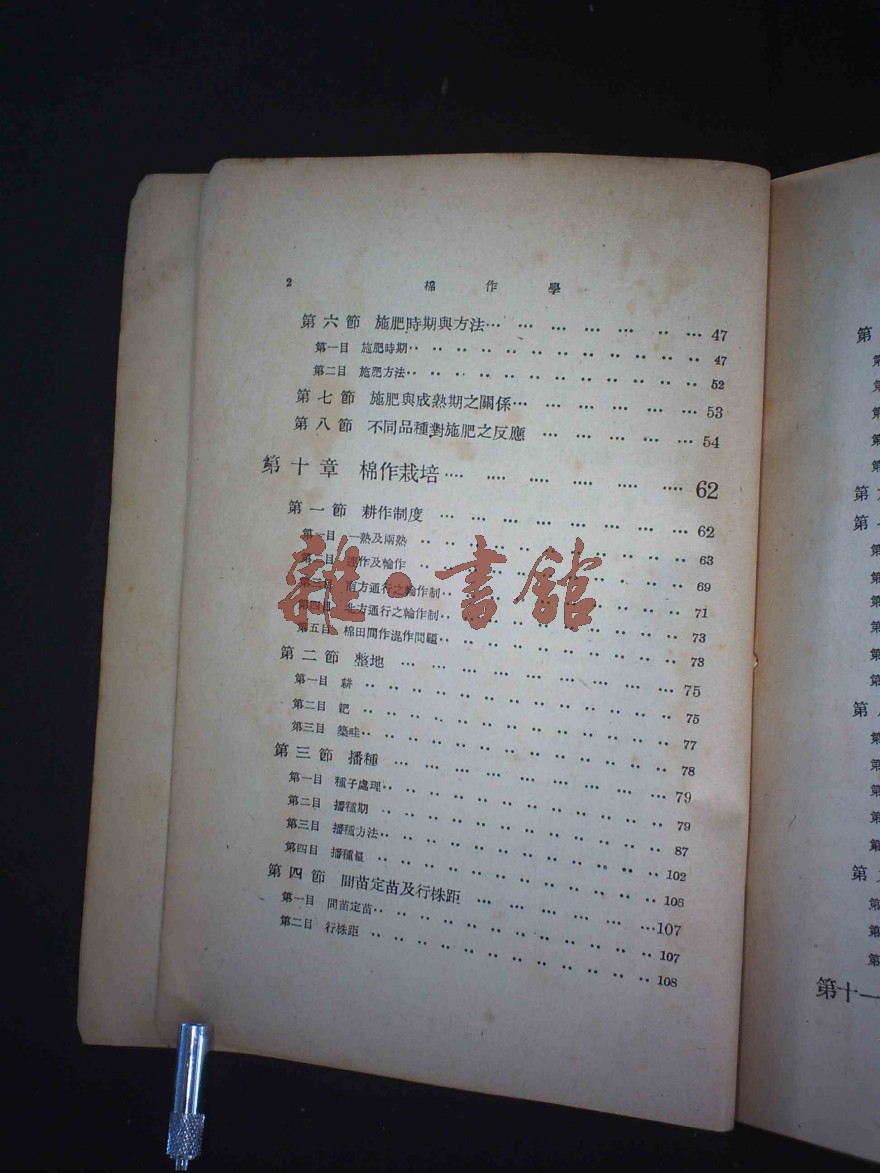 2 棉作學
第六節 施肥時期與方法… … … … … … … 47
第一目 施肥時期‥ ‥ ‥ ‥ ‥ ‥ ‥ ‥ ‥ ‥ ‥ ‥ 47
第二目 施肥方法‥ ‥ ‥ ‥ ‥ ‥ ‥ ‥ ‥ ‥ ‥ ‥ 52
第七節 施肥與成熟期之關係… … … … … … 53
第八節 不同品種對施肥之反應 … … … … … 54
第十章 棉作栽培…. …. …. …. …. …. 62
第一節 耕作制度 … … … … … … … … 62
第一目 一熟及兩熟 ‥ ‥ ‥ ‥ ‥ ‥ ‥ ‥ ‥ ‥ ‥ 63
第二目 連作及輪作 ‥ ‥ ‥ ‥ ‥ ‥ ‥ ‥ ‥ ‥ ‥ 69
第三目 南方通行之輪作制‥ ‥ ‥ ‥ ‥ ‥ ‥ ‥ ‥ 71
第四目 北方通行之輪作制‥ ‥ ‥ ‥ ‥ ‥ ‥ ‥ ‥ 73
第五目 棉田間作混作問題‥ ‥ ‥ ‥ ‥ ‥ ‥ ‥ ‥ 73
第二節 整地 … … … … … … … … 75
第一目 耕 ‥ ‥ ‥ ‥ ‥ ‥ ‥ ‥ ‥ ‥ ‥ ‥ 75
第二目 耙 ‥ ‥ ‥ ‥ ‥ ‥ ‥ ‥ ‥ ‥ ‥ ‥ 77
第三目 築畦 ‥ ‥ ‥ ‥ ‥ ‥ ‥ ‥ ‥ ‥ ‥ ‥ 78
第三節 播種 … … … … … … … … 79
第一目 種子處理‥ ‥ ‥ ‥ ‥ ‥ ‥ ‥ ‥ ‥ ‥ 79
第二目 播種期 ‥ ‥ ‥ ‥ ‥ ‥ ‥ ‥ ‥ ‥ ‥ 87
第三目 播種方法‥ ‥ ‥ ‥ ‥ ‥ ‥ ‥ ‥ ‥ ‥ 102
第四目 播種量 ‥ ‥ ‥ ‥ ‥ ‥ ‥ ‥ ‥ ‥ ‥
第四節 間苗定苗及行株距 … … … … … …107
第一目 間苗定苗‥ ‥ ‥ ‥ ‥ ‥ ‥ ‥ ‥ ‥ ‥ 107
第二目 行株距 ‥ ‥ ‥ ‥ ‥ ‥ ‥ ‥ ‥ ‥ ‥ 108
雜·書館
第
第
第
第
第
第
第
第
第
第
第
第
第
第
第
第
第
第
第
第
第
第
第
第十一